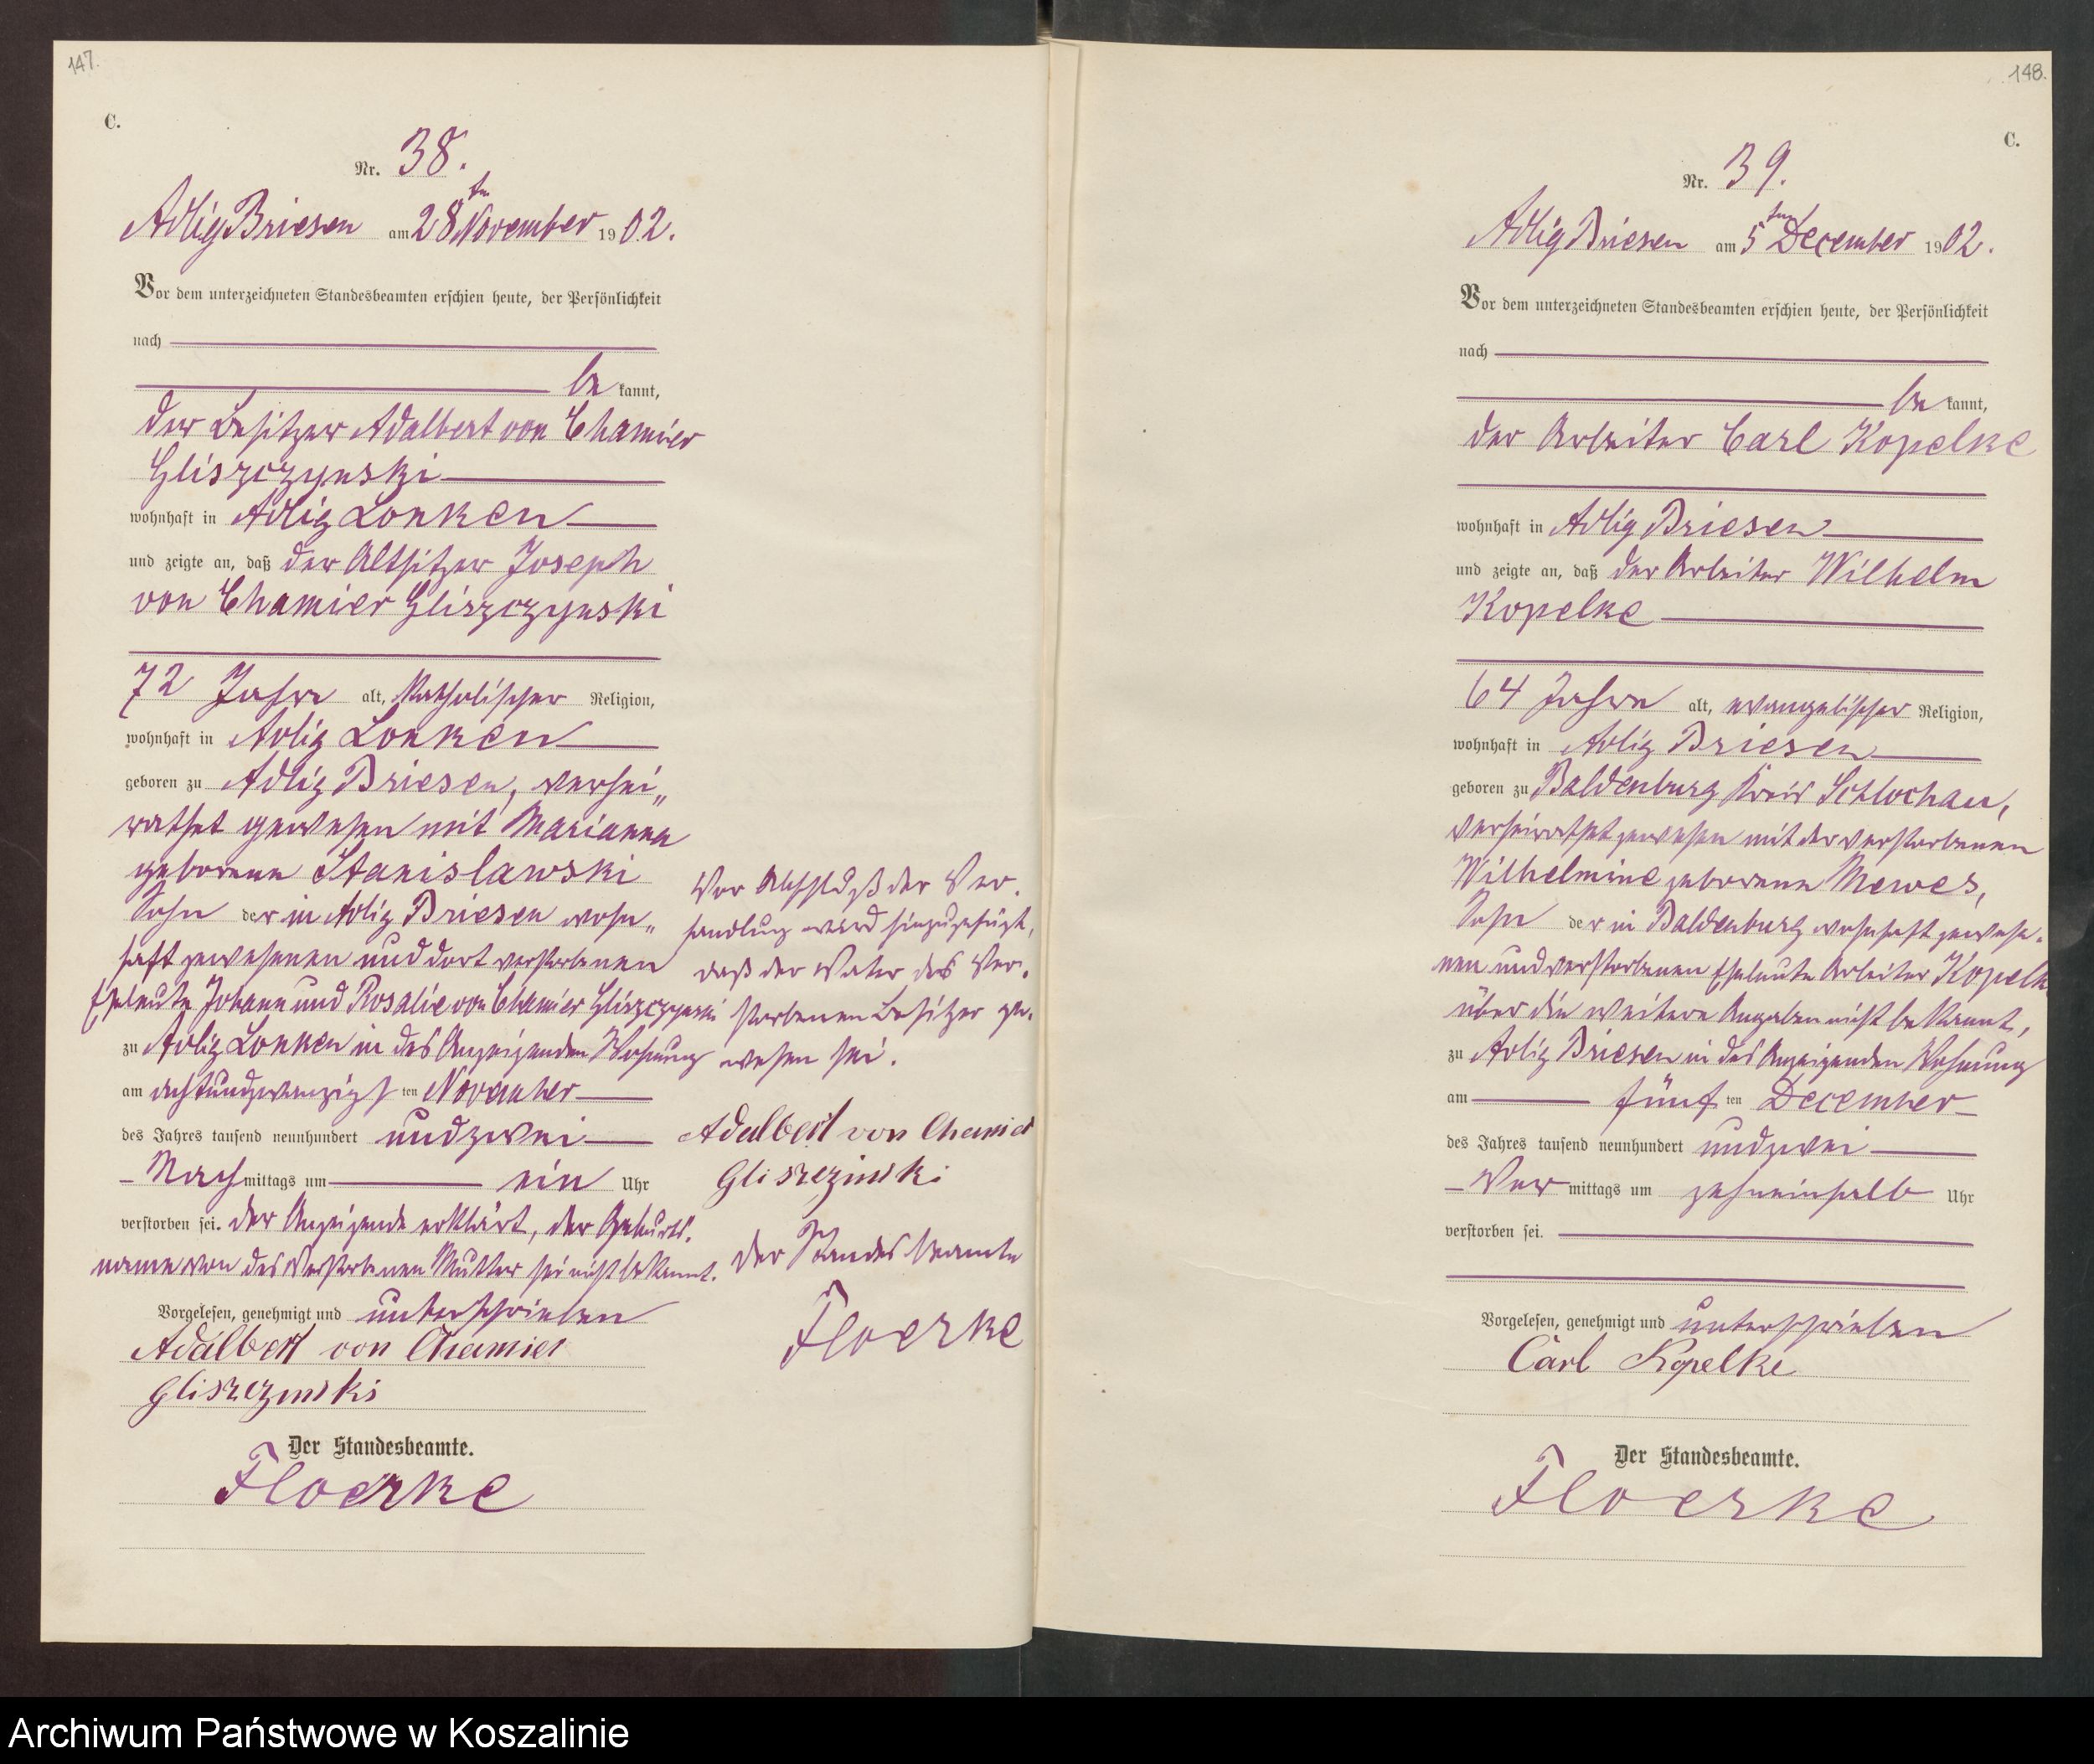 147.
C.
Nr. 38.
Adlig Briesen am 28ten November 1902.
Vor dem unterzeichneten Standesbeamten erschien heute, der Persönlichkeit
nach
be kannt,
der Besitzer Adalbert von Chamier
Gliszczynski
wohnhaft in Adlig Lonken
und zeigte an, daß der Altsitzer Joseph
von Chamier Gliszczynski
72 Jahre alt, katholischer Religion,
wohnhaft in Adlig Lonken
geboren zu Adlig Briesen, verhei„
rathet gewesen mit Marianna
geborene Stanislawski
Sohn der in Adlig Briesen wohn„
haft gewesenen und dort verstorbenen
Eheleute Johann und Rosalie von Chamier Gliszczynski
zu Adlig Lonken in des Anzeigenden Wohnung
am achtundzwanzigsten November
des Jahres tausend neunhundert undzwei
Nachmittags um ein Uhr
verstorben sei. Der Anzeigende erklärt, der Geburts-
name von des Verstorbenen Mutter sei nicht bekannt.
Vorgelesen, genehmigt und unterschrieben
Adalbert von Chamier
Gliszczinski
Der Standesbeamte.
Floerke
Vor Abschluß der Ver-
handlung wird hinzugefügt,
daß der Vater des Ver-
storbenen Besitzer ge-
wesen sei.
Adalbert von Chamier
Gliszczinski
Der Standesbeamte
Floerke
148.
C.
Nr. 39.
Adlig Briesen am 5ten December 1902.
Vor dem unterzeichneten Standesbeamten erschien heute, der Persönlichkeit
nach
be kannt,
der Arbeiter Carl Kopelke
wohnhaft in Adlig Briesen
und zeigte an, daß der Arbeiter Wilhelm
Kopelke
64 Jahre alt, evangelischer Religion,
wohnhaft in Adlig Briesen
geboren zu Baldenburg Kreis Schlochau,
verheirathet gewesen mit der verstorbenen
Wilhelmine geborene Mewes,
Sohn der in Baldenburg wohnhaft gewese-
nen und verstorbenen Eheleute Arbeiter Kopelke
über die weitere Angaben nicht bekannt,
zu Adlig Briesen in des Anzeigenden Wohnung
am fünften December
des Jahres tausend neunhundert undzwei
Vormittags um zehneinhalb Uhr
verstorben sei.
Vorgelesen, genehmigt und unterschrieben
Carl Kopelke
Der Standesbeamte.
Floerke
Archiwum Państwowe w Koszalinie